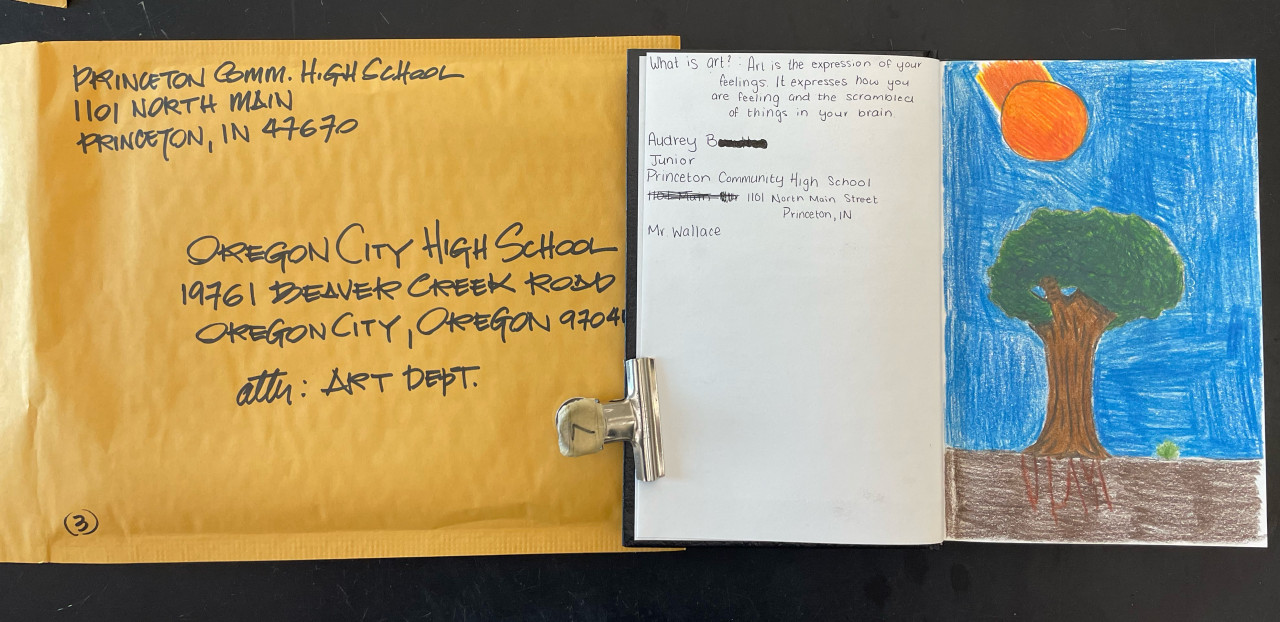 PRINCETON COMM. HIGH SCHOOL
1101 NORTH MAIN
PRINCETON, IN 47670
OREGON CITY HIGH SCHOOL
19761 BEAVER CREEK ROAD
OREGON CITY, OREGON 9704
attn: ART DEPT.
3
7
What is art? : Art is the expression of your
feelings. It expresses how you
are feeling and the scrambled
of things in your brain.
Audrey B
Junior
Princeton Community High School
1101 North Main Street
Princeton, IN
Mr. Wallace